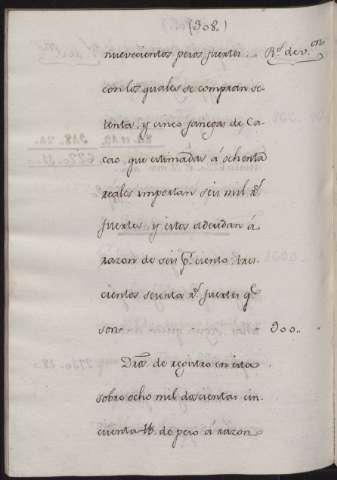 (908.)
nuevecientos pesos fuertes. Rs. de v.on
con los quales se compran se-
tenta, y cinco fanegas de Ca-
cao, que estimadas á ochenta
reales importan seis mil rs.
fuertes, y estos adeudan á
razon de seis p.r ciento tres-
cientos sesenta rs. fuertes q.e
son 900..
Dros. de registro en esta
sobre ocho mil doscientas cin-
cuenta lb. de peso á razon